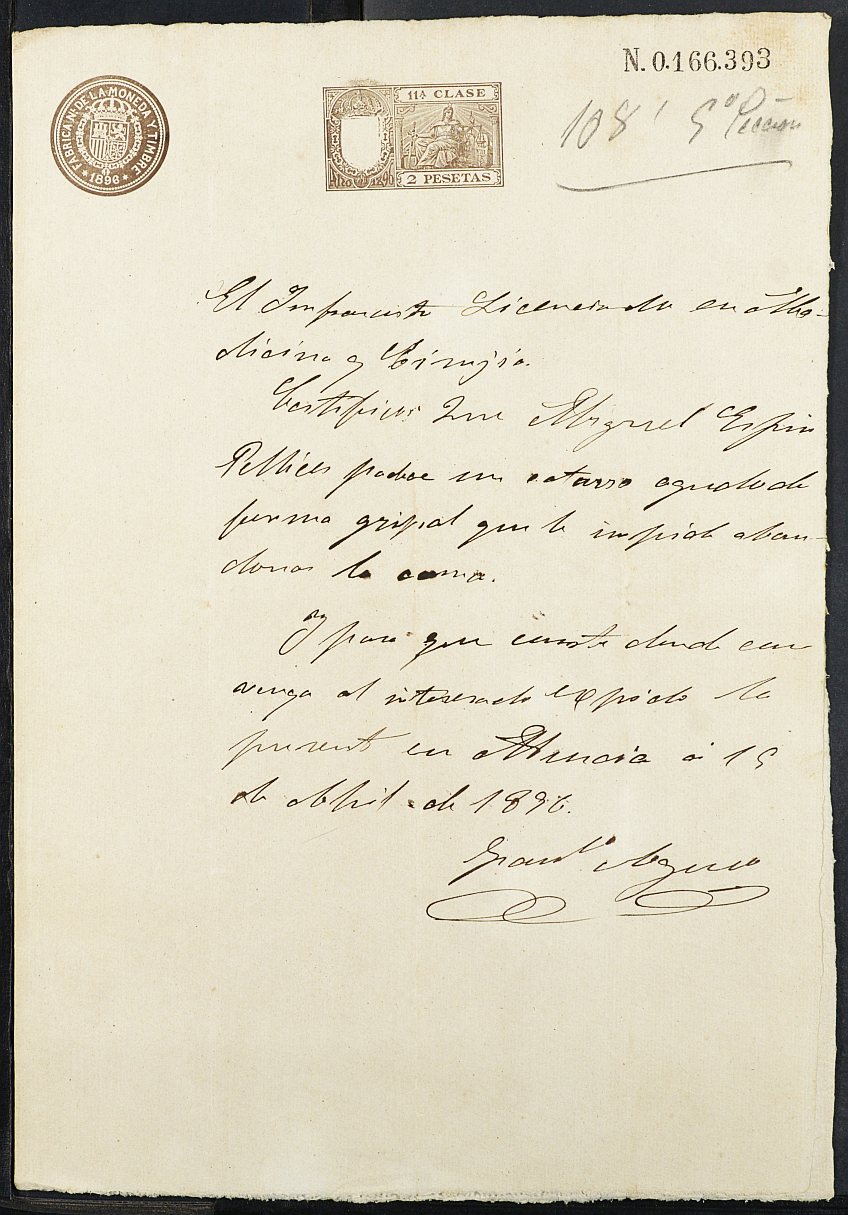 N. 0.166.393
FABRICA NL. DE LA MONEDA Y TIMBRE
* 1896 *
11ª CLASE
2 PESETAS
108' 5ª Sección
El Infrascrito Licenciado en Me-
dicina y Cirujia.
Certifico: Que Miguel Espin
Pellicer padece un catarro agudo de
forma gripal que le impide aban-
donar la cama.
Y para que conste donde con
venga al interesado expido la
presente en Murcia á 15
de Abril de 1896.